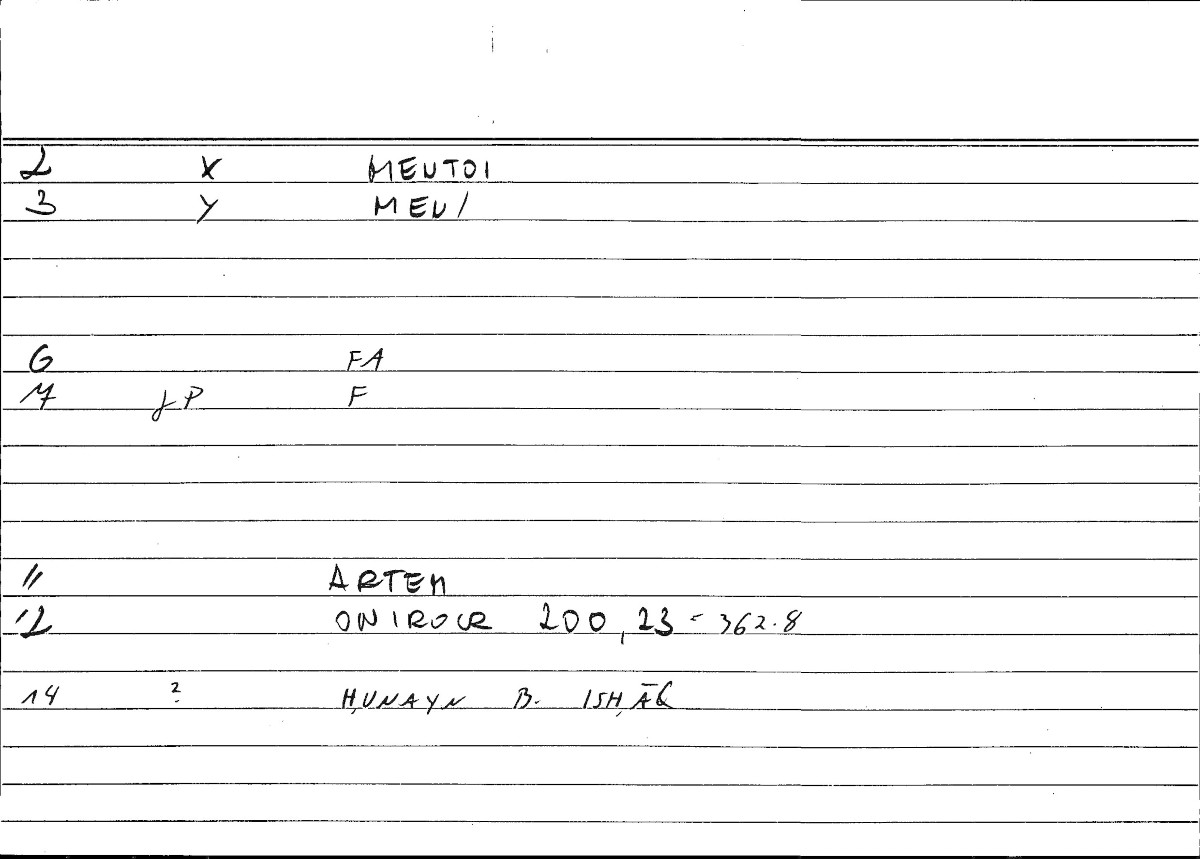 2 X MENTOI
3 Y MEN/
6 FA
7 JP F
11 ARTEM
12 ONIROCR 200,23 = 362.8
14 2 ḤUNAYN B. ISḤĀQ